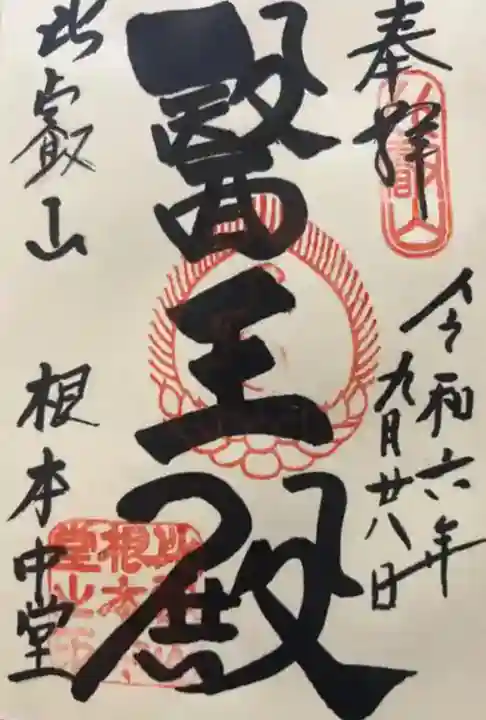 奉拝
比叡山
令和六年
九月廿八日
醫王殿
比叡山 根本中堂